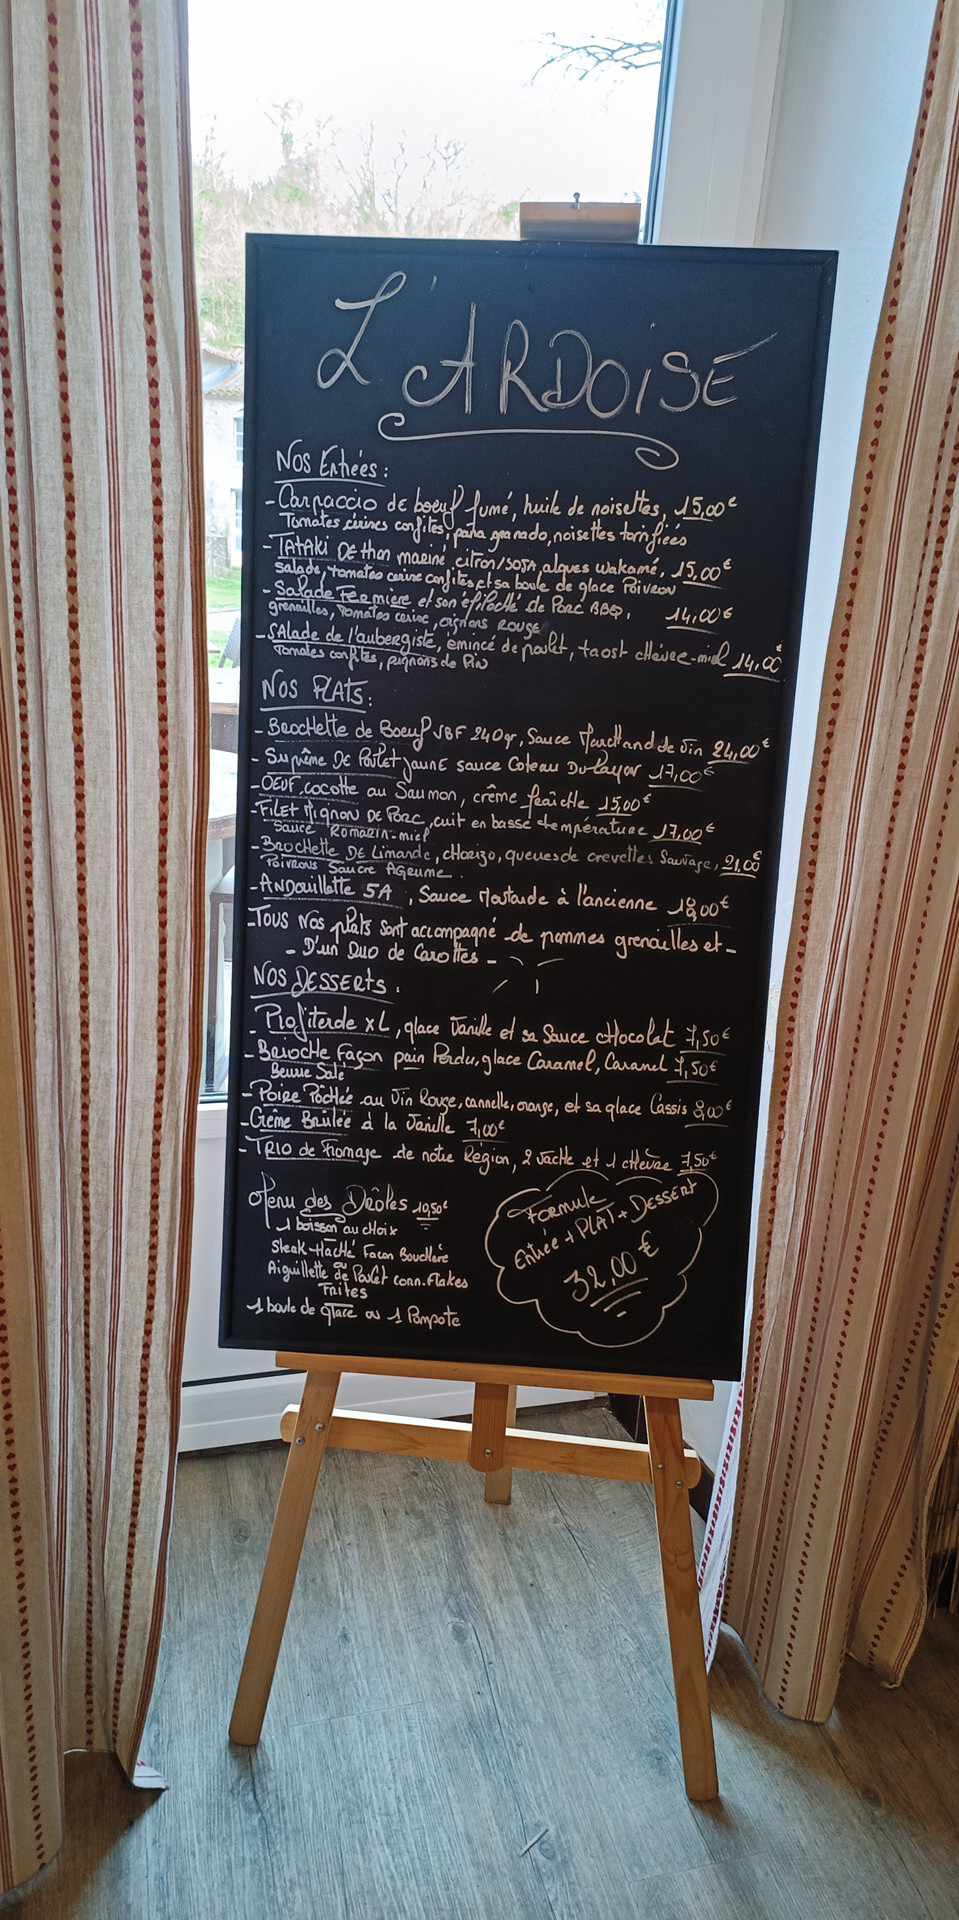 L'ARDOISE
NOS Entrées :
- Carpaccio de boeuf fumé, huile de noisettes, 15,00€
Tomates cerises confites, pana granado, noisettes torrifiées
- TATAKI DE thon mariné, citron/SOJA, algues wakamé, 15,00€
Salade, tomates cerise confites et sa boule de glace Poivron
- Salade Fermiere et son éfiloché de Porc BBQ, 14,00€
grenailles, Tomates cerise, oignons Rouge
- SAlade de l'aubergiste, émincé de poulet, toast chèvre-miel 14,00€
Tomates confites, pignons de Pin
NOS PLATS :
- Brochette de Boeuf VBF 240gr, Sauce Marchand de Vin 24,00€
- Suprême DE Poulet jaune sauce Coteau Du Layon 17,00€
- OEUF cocotte au Saumon, crème fraîche 15,00€
- FILET Mignon DE Porc, cuit en basse température 17,00€
Sauce Romarin-miel
- Brochette DE Limande, chorizo, queues de crevettes Sauvage, 21,00€
Poivrons Sauce Agrume.
- ANDouillette 5A, Sauce Moutarde à l'ancienne 18,00€
- Tous Nos plats sont accompagné de pommes grenailles et -
- D'un Duo de Carottes -
NOS DESSERTS.
- Profiterole XL, glace Vanille et sa Sauce chocolat 7,50€
- Brioche Façon pain Perdu, glace Caramel, Caramel 7,50€
Beurre Salé
- Poire Pochée au Vin Rouge, cannelle, orange, et sa glace Cassis 8,00€
- Crême Brûlée à la Vanille 7,00€
- TRIO de Fromage de notre Région, 2 vache et 1 chèvre 7,50€
Menu des Drôles 10,50€
1 boisson au choix
Steak-Haché Facon Bouchère
ou
Aiguillette de Poulet corn.flakes
Frites
1 boule de glace ou 1 Pompote
Formule
Entrée + PLAT + DESSERT
32,00€